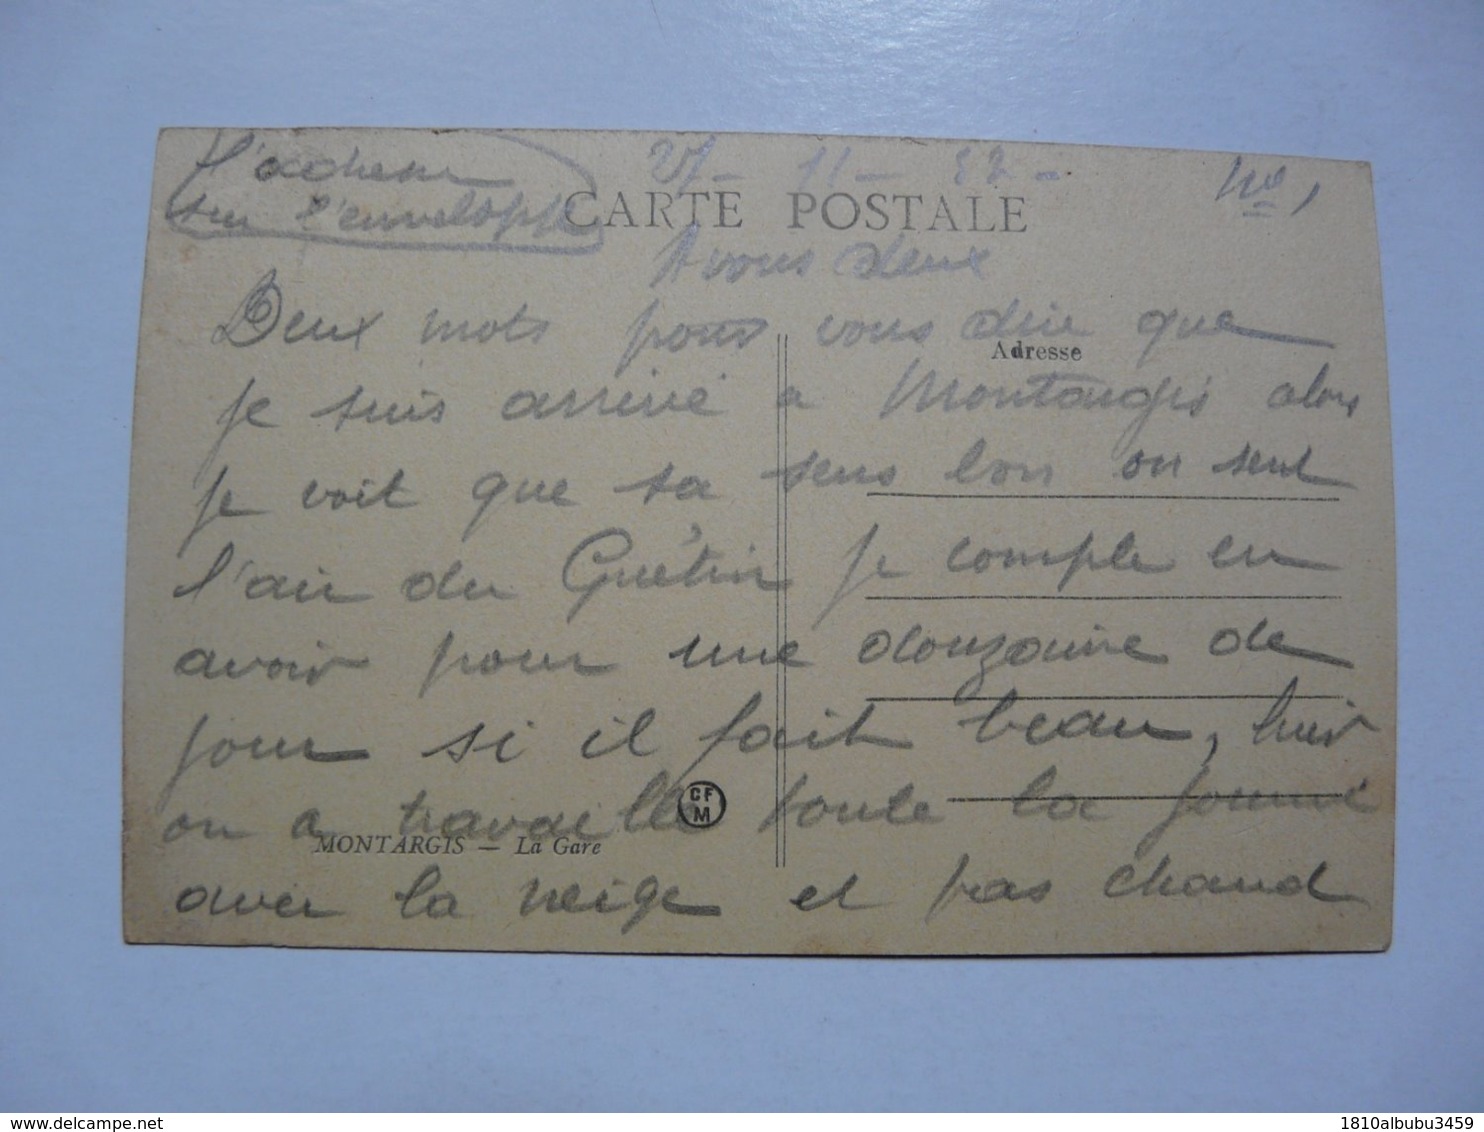 l'adresse
sur l'enveloppe
11 - 52 -
N° 1
CARTE POSTALE
A vous deux
Deux mots pour vous dire que
Adresse
je suis arrivé a Montargis alors
je voit que sa sens bon on sent
l'air du Guétin je compte en
avoir pour une douzaine de
jour si il fait beau, hier
on a travaillé toute la journé
CFM
MONTARGIS — La Gare
avec la neige et pas chaud
delcampe.net
1810albubu3459